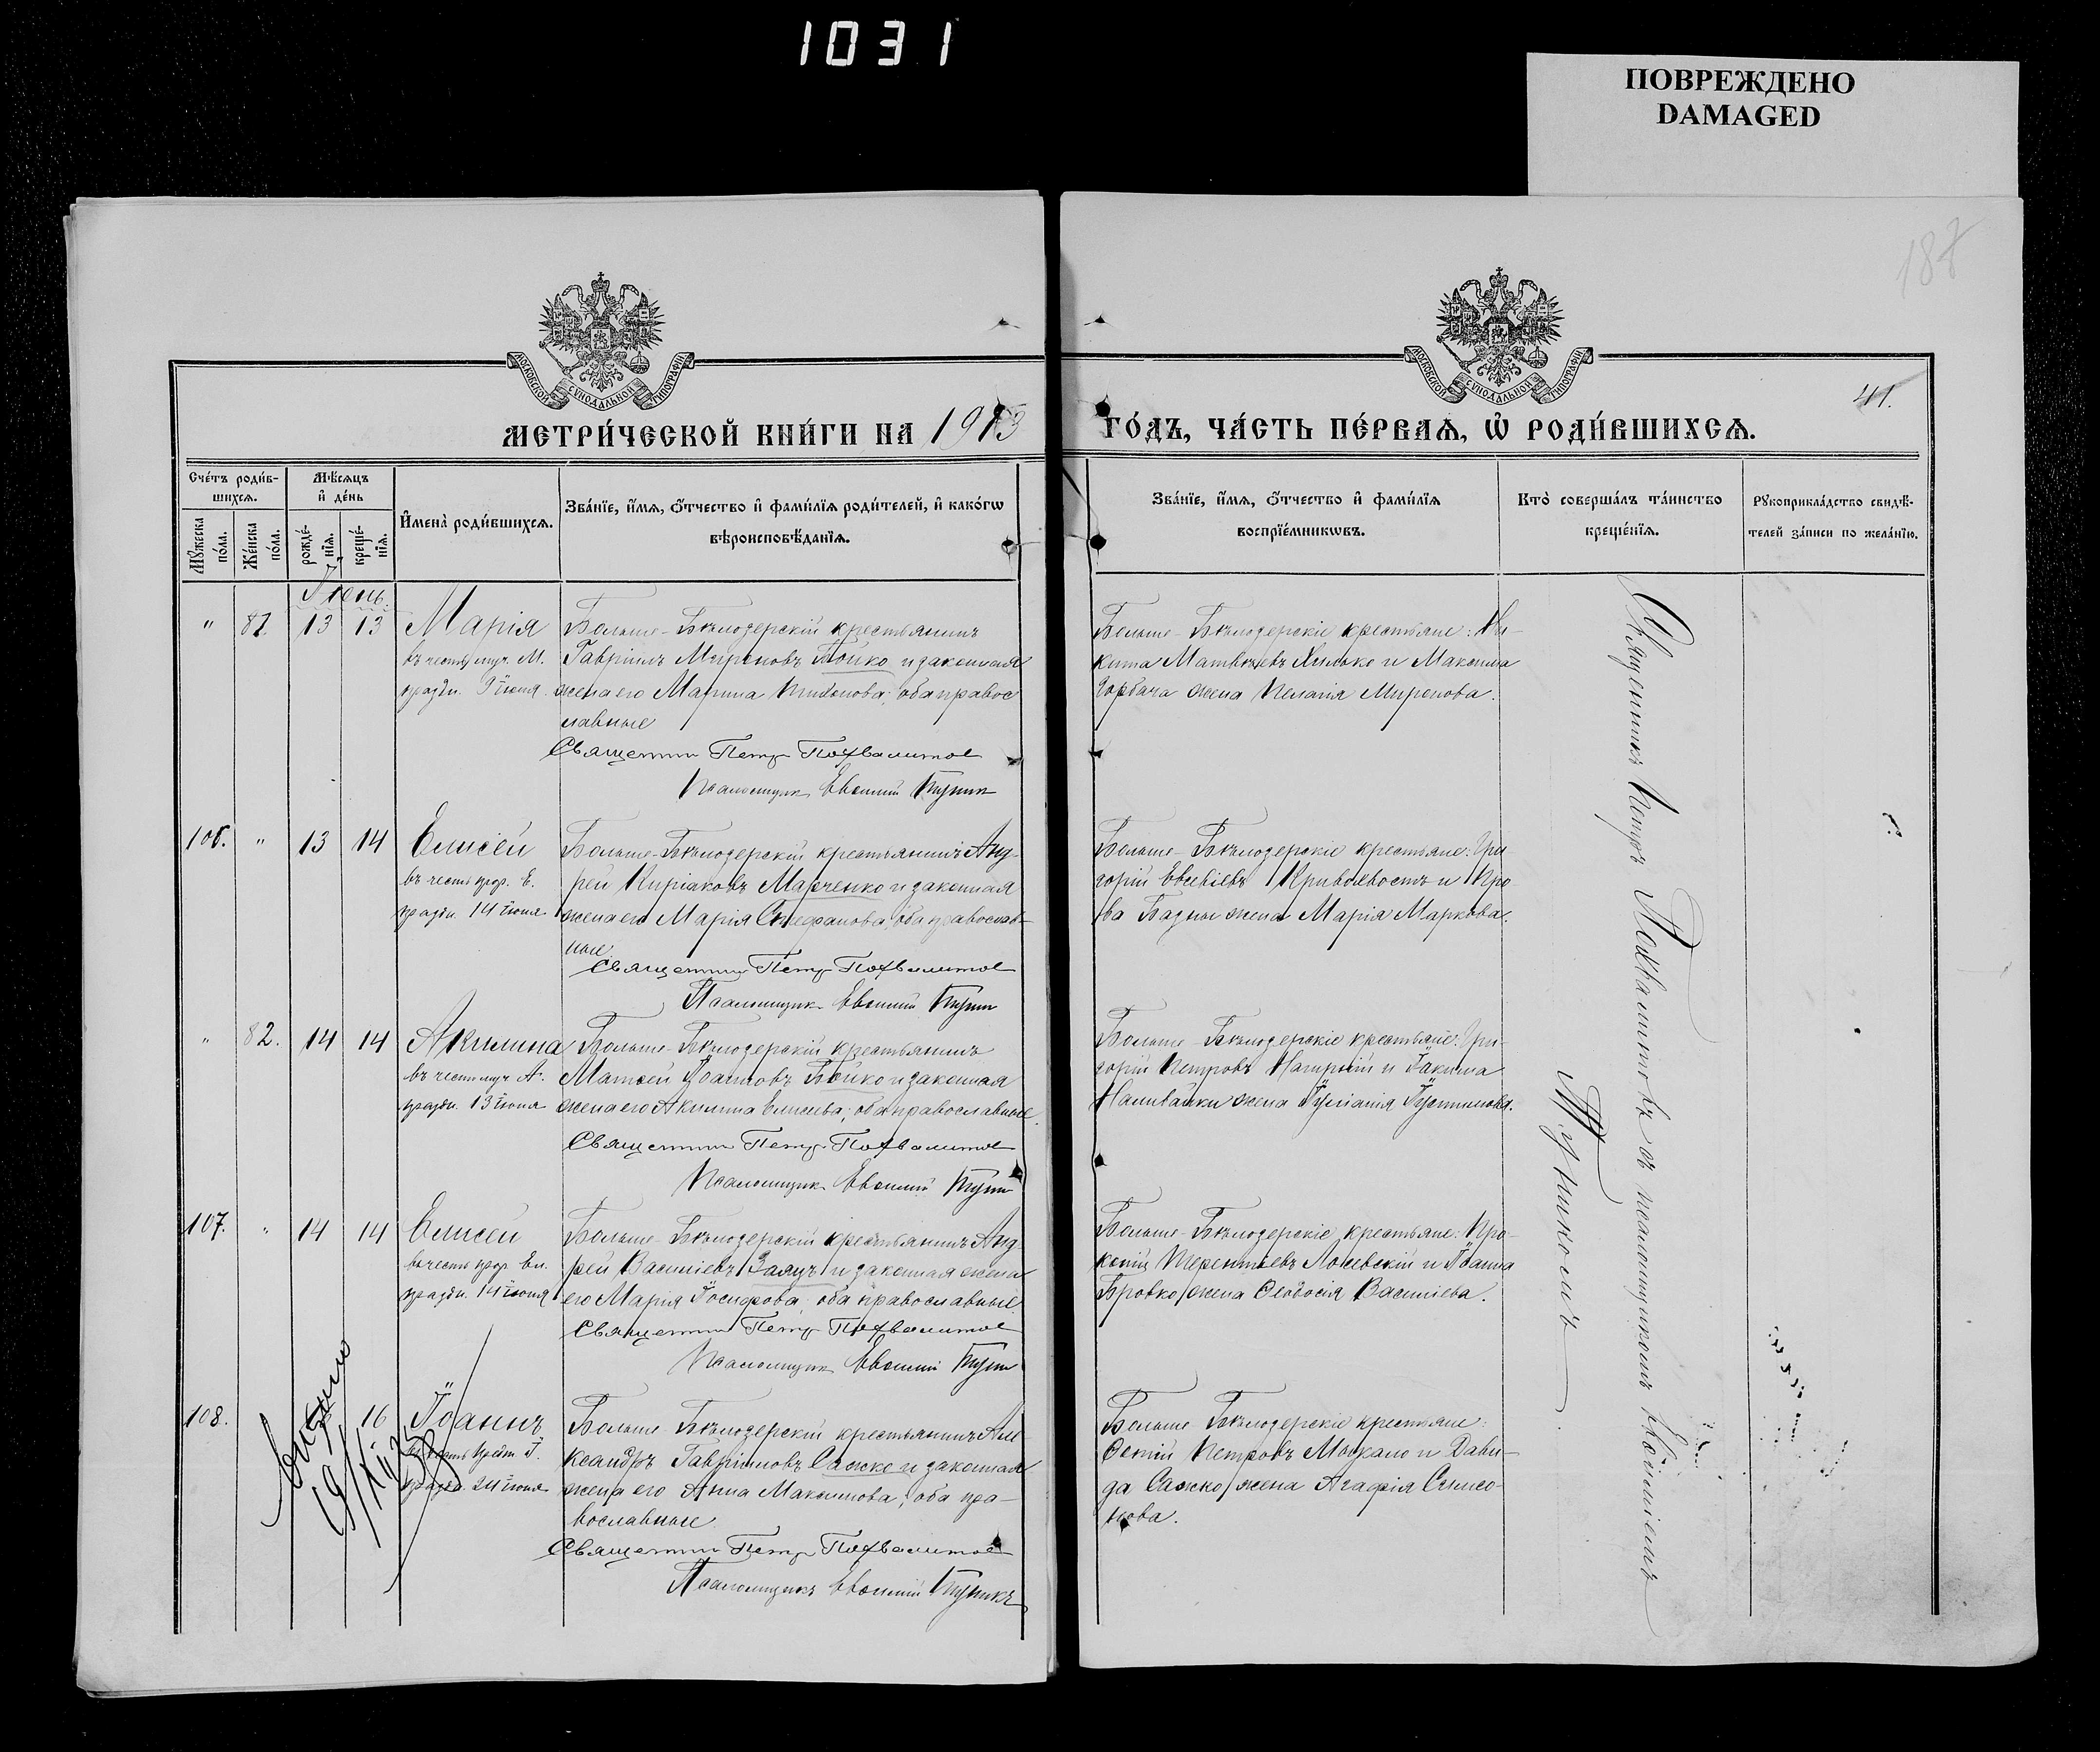 1031
ПОВРЕЖДЕНО
DAMAGED
187
МОСКОВСКОЙ СѴНОДАЛЬНОЙ ТИПОГРАФІИ
МОСКОВСКОЙ СѴНОДАЛЬНОЙ ТИПОГРАФІИ
41.
МЕТРИ́ЧЕСКОЙ КНИ́ГИ НА 1913 ГО́ДЪ, ЧА́СТЬ ПЕ́РВАѦ, Ѡ҆ РОДИ́ВШИХСѦ.
Сче́тъ роди́в-
шихсѧ.
Мꙋ́жеска по́ла.
Же́нска по́ла.
Мѣ́сѧцъ
и҆ де́нь
рожде́-
нїѧ.
креще́-
нїѧ.
И҆мена̀ роди́вшихсѧ.
Зва́нїе, и҆́мѧ, ѻ҆́тчество и҆ фами́лїѧ роди́телей, и҆ како́гѡ
вѣроисповѣ́данїѧ.
Зва́нїе, и҆́мѧ, ѻ҆́тчество и҆ фами́лїѧ
воспрїе́мникѡвъ.
Кто̀ соверша́лъ та́инство
креще́нїѧ.
Рꙋкоприкла́дство свидѣ́-
телей за́писи по жела́нїю.
Іюнь.
" 81. 13 13 Марія
въ честь муч. М.
празdн. 9 іюня.
Больше-Бѣлозерскій крестьянинъ
Гавріилъ Мироновъ Бойко и законная
жена его Марина Тихонова; оба правос
лавные
Священник Петр Похвалитов
Псаломщик Евѳимій Тупик
Больше-Бѣлозерскіе крестьяне: Ни-
кита Матвѣевъ Хилько и Максима
Горбача жена Пелагія Миронова.
106. " 13 14 Елисей
въ честь прор. Е.
праздн. 14 іюня
Больше-Бѣлозерскій крестьянинъ Анд-
рей Киріаковъ Марченко и законная
жена его Марія Стефанова; оба православ-
ные
Священник Петр Похвалитов
Псаломщик Евѳимій Тупик
Больше-Бѣлозерскіе крестьяне: Гри-
горій Евсевіевъ Кривохвостъ и Про-
ва жена Марія Маркова.
" 82. 14 14 Акилина
въ честь муч. А.
праздн. 13 іюня
Больше-Бѣлозерскій крестьянинъ
Матѳей Іоанновъ Бойко и законная
жена его Акилина Елисеева; оба православные.
Священник Петр Похвалитов
Псаломщик Евѳимій Тупик
Больше-Бѣлозерскіе крестьяне: Гри-
горій Петровъ и Іакима
Наливайки жена Іуліанія Іустинова.
107. " 14 14 Елисей
въ честь прор. Ел.
праздн. 14 іюня
Больше-Бѣлозерскій крестьянинъ Анд-
рей Василіевъ Заяцъ и законная жена
его Марія Іосифова; оба православные
Священник Петр Похвалитов
Псаломщик Евѳимій Тупик
Больше-Бѣлозерскіе крестьяне: Про-
копій Терентіевъ и Іоанна
Бровко жена Ѳеодосія Василіева.
108. 16 Іоаннъ
въ честь Предт. І.
праздн. 24 іюня
Больше-Бѣлозерскій крестьянинъ Але
ксандръ Гавріиловъ Сажко и законная
жена его Анна Максимова; оба пра-
вославные
Священник Петр Похвалитов
Псаломщикъ Евѳимій Тупикъ
Больше-Бѣлозерскіе крестьяне:
Петровъ и Дави-
да Сажко жена Агафія Симео-
нова.
Священникъ Петръ Похвалитовъ съ псаломщикомъ Евѳиміемъ
Тупикомъ.